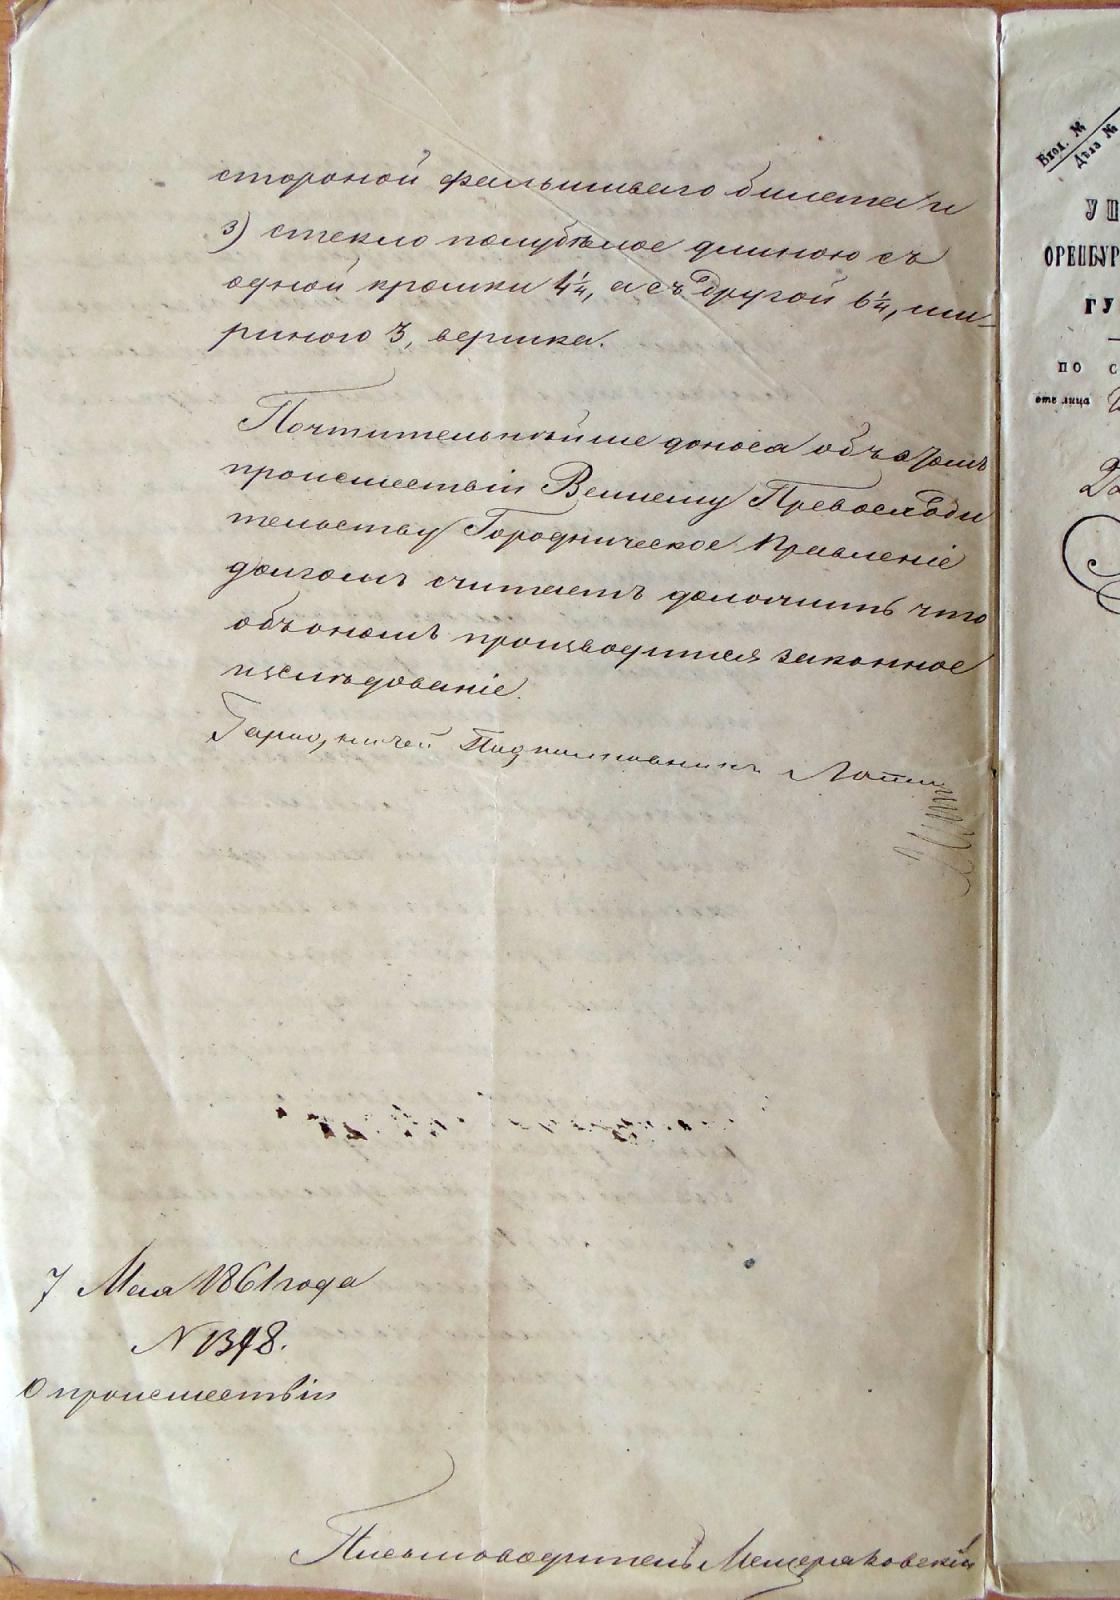 стороной фальшиваго билета и
3) стекло полубѣлое длиною съ
одной кромки 4¼, а съ другой 6¼, ши-
риною 3, вершка.
Почтительнѣйше донося объ этомъ
происшествіи Вашему Превосходи
тельству Городническое Правленіе
долгомъ считаетъ доложить что
объ ономъ производится законное
изслѣдованіе.
Городничей Подполковникъ
7 Мая 1861 года
N 1348.
О происшествіи
Письмоводитель Мещеряковскій
Вход. №
Дѣла №
УП
ОРЕНБУР
ГУ
ПО С
отъ лица